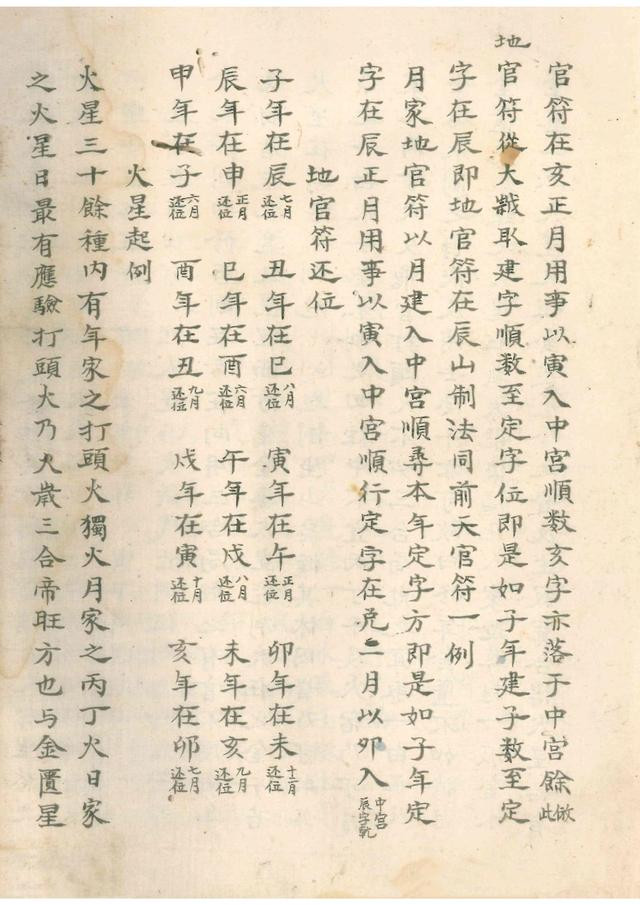 官符在亥正月用事以寅入中宮順数亥字亦落于中宮餘倣此
地官符從大歲取建字順数至定字位即是如子年建子数至定
字在辰即地官符在辰山制法同前天官符一例
月家地官符以月建入中宮順尋本年定字方即是如子年定
字在辰正月用事以寅入中宮順行定字在兊二月以夘入中宮辰字乾
地官符还位
子年在辰七月还位 丑年在巳八月还位 寅年在午正月还位 卯年在未十二月还位
辰年在申正月还位 巳年在酉六月还位 午年在戌八月还位 未年在亥九月还位
申年在子六月还位 酉年在丑九月还位 戌年在寅十月还位 亥年在卯七月还位
火星起例
火星三十餘種内有年家之打頭火獨火月家之丙丁火日家
之火星日最有應驗打頭火乃大歲三合帝旺方也与金匱星